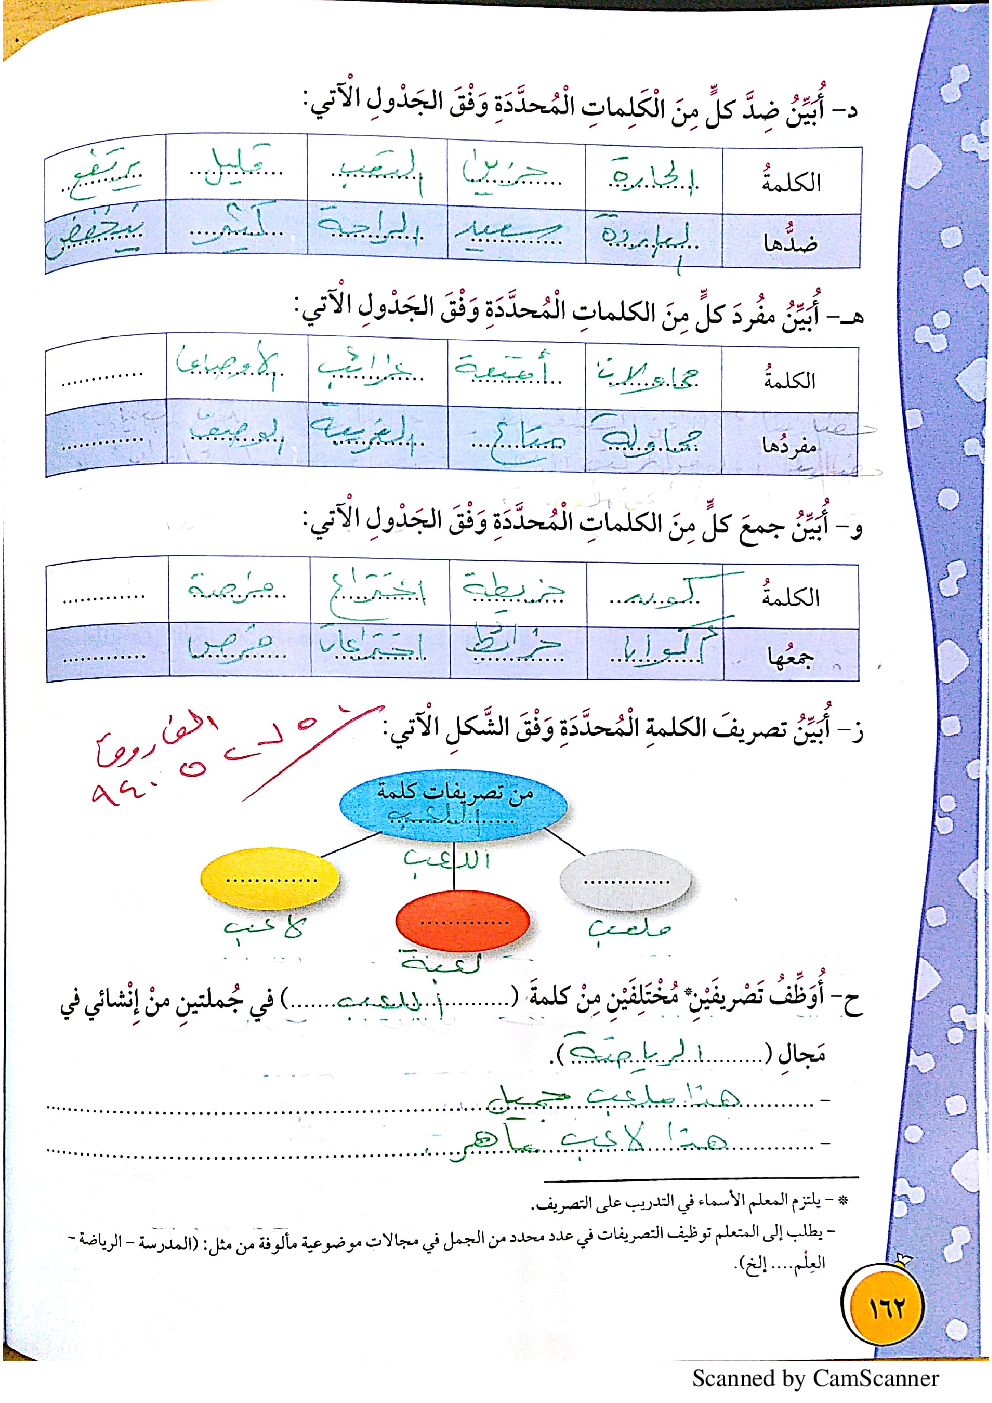 د- أُبَيِّنُ ضِدَّ كلٍّ مِنَ الْكَلِماتِ الْمُحدَّدَةِ وَفْقَ الجَدْولِ الْآتي:
الكلمةُ الحارة حزين التعب قليل يرتفع
ضدُّها الباردة سعيد الراحة كثير ينخفض
هـ- أُبَيِّنُ مفُردَ كلٍّ مِنَ الكلماتِ الْمُحدَّدَةِ وَفْقَ الجَدْولِ الْآتي:
الكلمةُ محاولات أمتعة غرائب ............
مفردُها محاولة متاع الغريبة الوصف ............
و- أُبَيِّنُ جمعَ كلٍّ مِنَ الكلماتِ الْمُحدَّدَةِ وَفْقَ الجَدْولِ الْآتي:
الكلمةُ كوب خريطة اختراع فرصة ............
جمعُها أكواب خرائط اختراعات فرص ............
ز- أُبَيِّنُ تصريفَ الكلمةِ الْمُحدَّدَةِ وَفْقَ الشَّكلِ الْآتي:
من تصريفات كلمة
اللعب
اللعب
ملعب لعبة لاعب
ح- أُوَظِّفُ تَصْريفَيْنِ* مُخْتَلِفَيْنِ مِنْ كلمةَ (اللعب) في جُملتينِ منْ إنْشائي في
مَجالِ (الرياضة).
- هذا ملعب جميل
- هذا لاعب ماهر
* - يلتزم المعلم الأسماء في التدريب على التصريف.
- يطلب إلى المتعلم توظيف التصريفات في عدد محدد من الجمل في مجالات موضوعية مألوفة من مثل: (المدرسة - الرياضة -
العِلْم.... إلخ).
١٦٢
Scanned by CamScanner